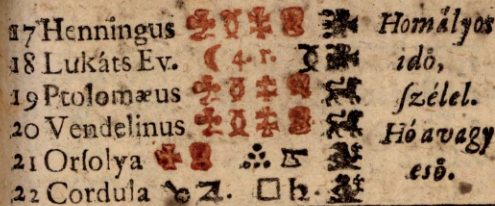 17 Henningus Homályos
18 Lukáts Ev. ☾ 4. r. idő,
19 Ptolomæus ſzélel.
20 Vendelinus Hó avagy
21 Orſolya eső.
22 Cordula